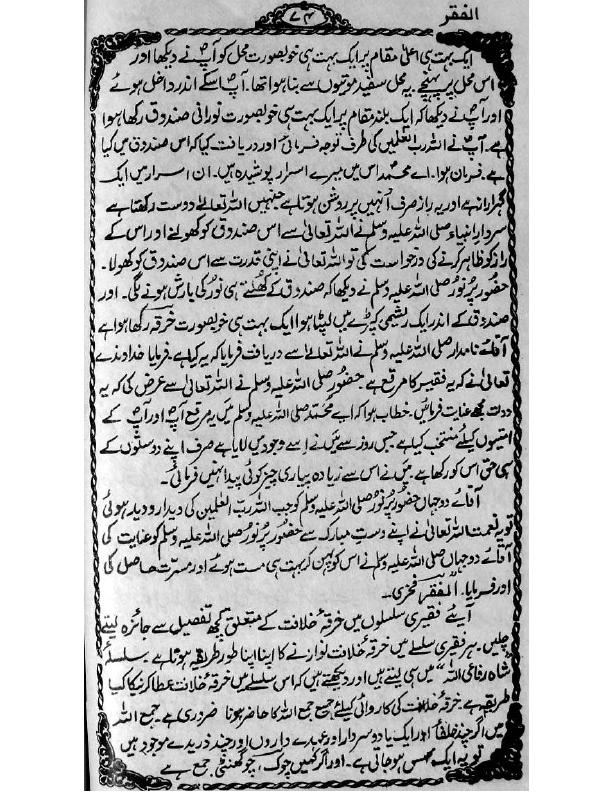 الفقر
۷۴
ایک بہت ہی اعلیٰ مقام پر ایک بہت ہی خوبصورت محل کو آپؐ نے دیکھا اور
اس محل پر پہنچے۔ یہ محل سفید موتیوں سے بنا ہوا تھا۔ آپؐ اسکے اندر داخل ہوئے
اور آپؐ نے دیکھا کہ ایک بلند مقام پر ایک بہت ہی خوبصورت نورانی صندوق رکھا ہوا
ہے۔ آپؐ نے اللہ رب العلمین کی طرف توجہ فرمائی اور دریافت کیا کہ اس صندوق میں کیا
ہے۔ فرمان ہوا۔ اے محمدؐ اس میں میرے اسرار پوشیدہ ہیں۔ ان اسرار میں ایک
گہرا راز ہے اور یہ راز صرف انہیں پر روشن ہوتا ہے جنہیں اللہ تعالیٰ دوست رکھتا ہے
سردارِ انبیاء صلی اللہ علیہ وسلم نے اللہ تعالیٰ سے اس صندوق کو کھولنے اور اس کے
راز کو ظاہر کرنے کی درخواست کی تو اللہ تعالیٰ نے اپنی قدرت سے اس صندوق کو کھولا۔
حضور پُر نور صلی اللہ علیہ وسلم نے دیکھا کہ صندوق کے کھلتے ہی نور کی بارش ہونے لگی۔ اور
صندوق کے اندر ایک ریشمی کپڑے میں لپٹا ہوا ایک بہت ہی خوبصورت خرقہ رکھا ہوا ہے
آقائے نامدار صلی اللہ علیہ وسلم نے اللہ تعالےٰ سے دریافت فرمایا کہ یہ کیا ہے۔ فرمایا خداوند
تعالیٰ نے کہ یہ فقیر کا مرقع ہے حضور صلی اللہ علیہ وسلم نے اللہ تعالیٰ سے عرض کی کہ یہ
دولت مجھے عنایت فرمائیں۔ خطاب ہوا کہ اے محمد صلی اللہ علیہ وسلم میں یہ مرقع آپؐ اور آپؐ کے
امتیوں کیلئے منتخب کیا ہے جس روز سے میں نے اِسے وجود میں لایا ہے صرف اپنے دوستوں کے
ہی حق اس کو رکھا ہے۔ میں نے اس سے زیادہ پیاری چیز کوئی پیدا نہیں فرمائی۔
آقائے دو جہاں حضور پُر نور صلی اللہ علیہ وسلم کو جب اللہ رب العلمین کی دیدار و دید ہوئی
تو یہ نعمت اللہ تعالیٰ نے اپنے دستِ مبارک سے حضور پُر نور صلی اللہ علیہ وسلم کو عنایت کی
آقائے دو جہاں صلی اللہ علیہ وسلم نے اس کو پہن کر بہت ہی مست ہوئے اور مسرت حاصل کی
اور فرمایا۔ الفقر فخری۔
آیئے فقیری سلسلوں میں خرقۂ خلافت کے متعلق کچھ تفصیل سے جائزہ لیتے
چلیں۔ ہر فقیری سلسلے میں خرقۂ خلافت نوازنے کا اپنا اپنا طور طریقہ ہوتا ہے۔ سلسلۂ
شاہ رفاعی اللہ" میں ہی لیتے ہیں اور دیکھتے ہیں کہ اس سلسلے میں خرقۂ خلافت عطا کرنیکا کیا
طریقہ ہے۔ خرقۂ خلافت کی کاروائی کیلئے جمع جمع اللہ کا حاضر ہونا ضروری ہے۔ جمع اللہ
میں اگر چند خلفاء اور ایک یا دو سردار اور عہدے داروں اور چند ذریدے موجود ہیں
تو یہ ایک مجلس ہو جاتی ہے۔ اور اگر کہیں چوک، چوگھنٹی جمع ہے